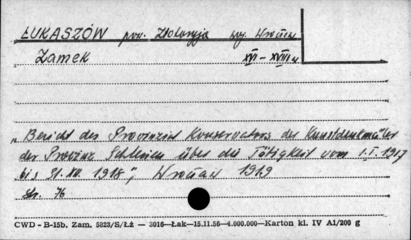 ŁUKASZÓW pow. Złotoryja woj. Wrocław
Zamek XVI-XVIII w
„Bericht des Provinzial Konservators der Kunstdenkmäler
der Provinz Schlesien über die Tätigkeit vom 1.I.1917
bis 31.XII.1918", Wrocław 1919
str. 76
CWD - B-15b. Zam. 5823/S/Łź — 3016—Łak—15.11.56—4.000.000—Karton kl. IV A1/200 g